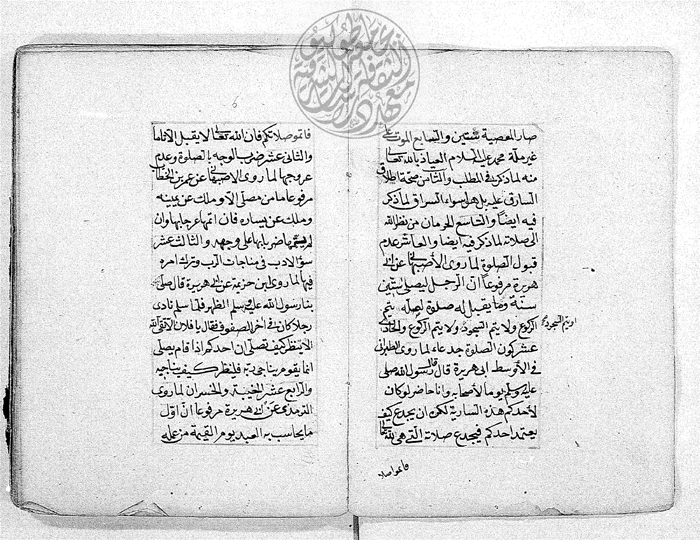 صار المعصية ستين والسابع الموت على
غير ملة محمد عليه السلام العياذ بالله تعالى
منه لما ذكر في المطلب والثامن صحة اطلاق
السارق عليه بل هو اسوء السراق لما ذكر
فيه ايضا والتاسع الحرمان من نظر الله
الى صلاته لما ذكر فيه ايضا والعاشر عدم
قبول الصلوة لما روى الأصبهانى عن ابى
هريرة مرفوعا ان الرجل ليصلى ستين
سنة وما يقبل له صلوة لعله يتم
الركوع ولا يتم السجود ولا يتم الركوع والحادى
او يتم السجود
عشر كون الصلوة جدعاء لما روى الطبرانى
في الأوسط ابى هريرة قال قال رسول الله صلى
عليه وسلم يوما لأصحابه وانا حاضر لو كان
لأحدكم هذه السارية لكره ان يجدع كيف
يعتمد احدكم فيجدع صلاته التى هى لله تعالى
فاتموا صلا
فاتموا صلاتكم فان الله تعالى لا يقبل الا تاما
والثانى عشر ضرب الوجه بالصلوة وعدم
عروجها لما روى الاصبهانى عن عمر بن الخطاب
مرفوعا ما من مصل الا وملك عن يمينه
وملك عن يساره فان اتمها عرجا بها وان
لم يتمها ضربا بها على وجهه والثالث عشر
سؤ الادب فى مناجات الرب وترك امره
فيها لما روى ابن خزيمة عن ابى هريرة قال صلى
بنا رسول الله عليه وسلم الظهر فلما سلم نادى
رجلا كان فى آخر الصفوف فقال يا فلان الا تتقى الله
الا ينظر كيف تصلى ان احدكم اذا قام يصلى
انما يقوم يناجى ربه فلينظر كيف يناجيه
والرابع عشر الخيبة والخسران لما روى
الترمذى عن ابى هريرة مرفوعا ان اول
ما يحاسب به العبد يوم القيمة من عمله